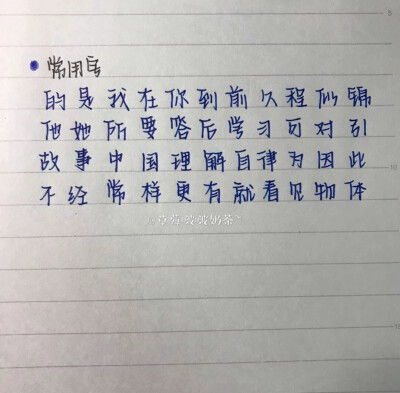 常用字
的是我在你到前久程似锦
他她所要答后学习可对引
故事中国理解自律为因此
不经常样更有就看见物体
草莓啵啵奶茶
5
10
15